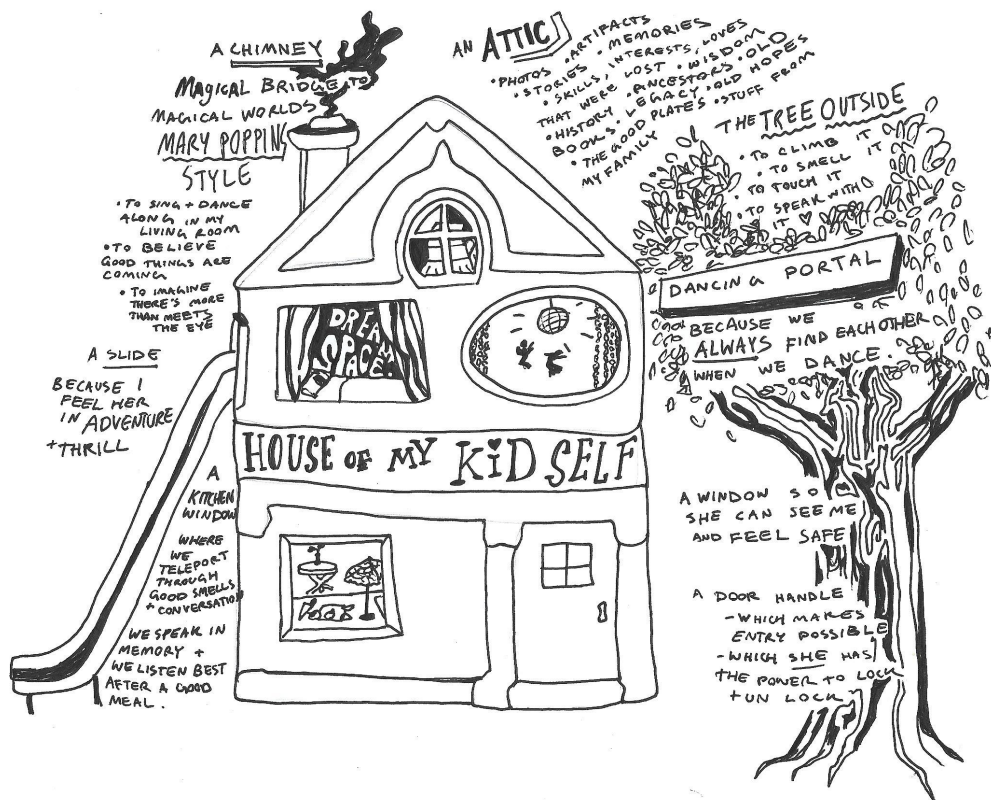 A CHIMNEY
MAGICAL BRIDGE TO
MAGICAL WORLDS
MARY POPPINS
STYLE
• TO SING + DANCE
ALONG IN MY
LIVING ROOM
• TO BELIEVE
GOOD THINGS ARE
COMING
• TO IMAGINE
THERE'S MORE
THAN MEETS
THE EYE
A SLIDE
BECAUSE I
FEEL HER
IN ADVENTURE
+ THRILL
A
KITCHEN
WINDOW
WHERE
WE
TELEPORT
THROUGH
GOOD SMELLS
+ CONVERSATION
WE SPEAK IN
MEMORY +
WE LISTEN BEST
AFTER A GOOD
MEAL.
AN ATTIC
• PHOTOS • ARTIFACTS
• STORIES • MEMORIES
• SKILLS, INTERESTS, LOVES
THAT WERE LOST • WISDOM
• HISTORY • ANCESTORS • OLD
BOOKS • LEGACY • OLD HOPES
• THE GOOD PLATES • STUFF FROM
MY FAMILY
DREAM
SPACE
HOUSE OF MY KID SELF
THE TREE OUTSIDE
• TO CLIMB IT
• TO SMELL IT
TO TOUCH IT
• TO SPEAK WITH
IT ♥
DANCING PORTAL
BECAUSE WE
ALWAYS FIND EACHOTHER
WHEN WE DANCE.
A WINDOW SO
SHE CAN SEE ME
AND FEEL SAFE
A DOOR HANDLE
- WHICH MAKES
ENTRY POSSIBLE
- WHICH SHE HAS
THE POWER TO LOCK
+ UN LOCK